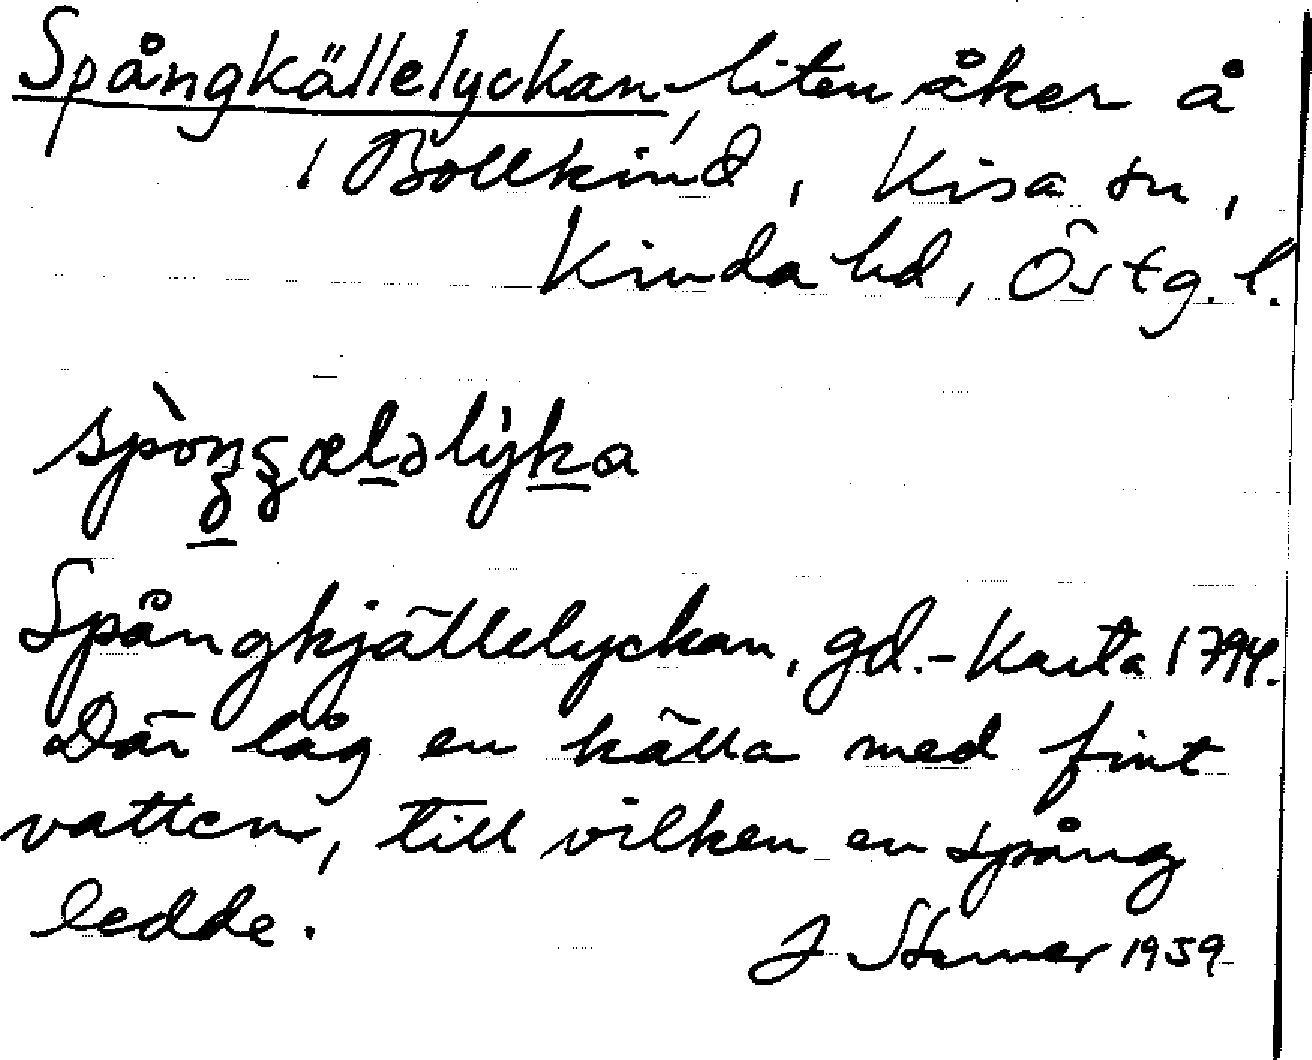 Spångkällelyckan, liten åker å
1 Bollkind, Kisa sn,
Kinda hd, Östg. l.
spòŋʒælalẏka
Spångkjällelyckan, gd. - Karta 1794.
Där låg en källa med fint
vatten, till vilken en spång
ledde.
J 1959